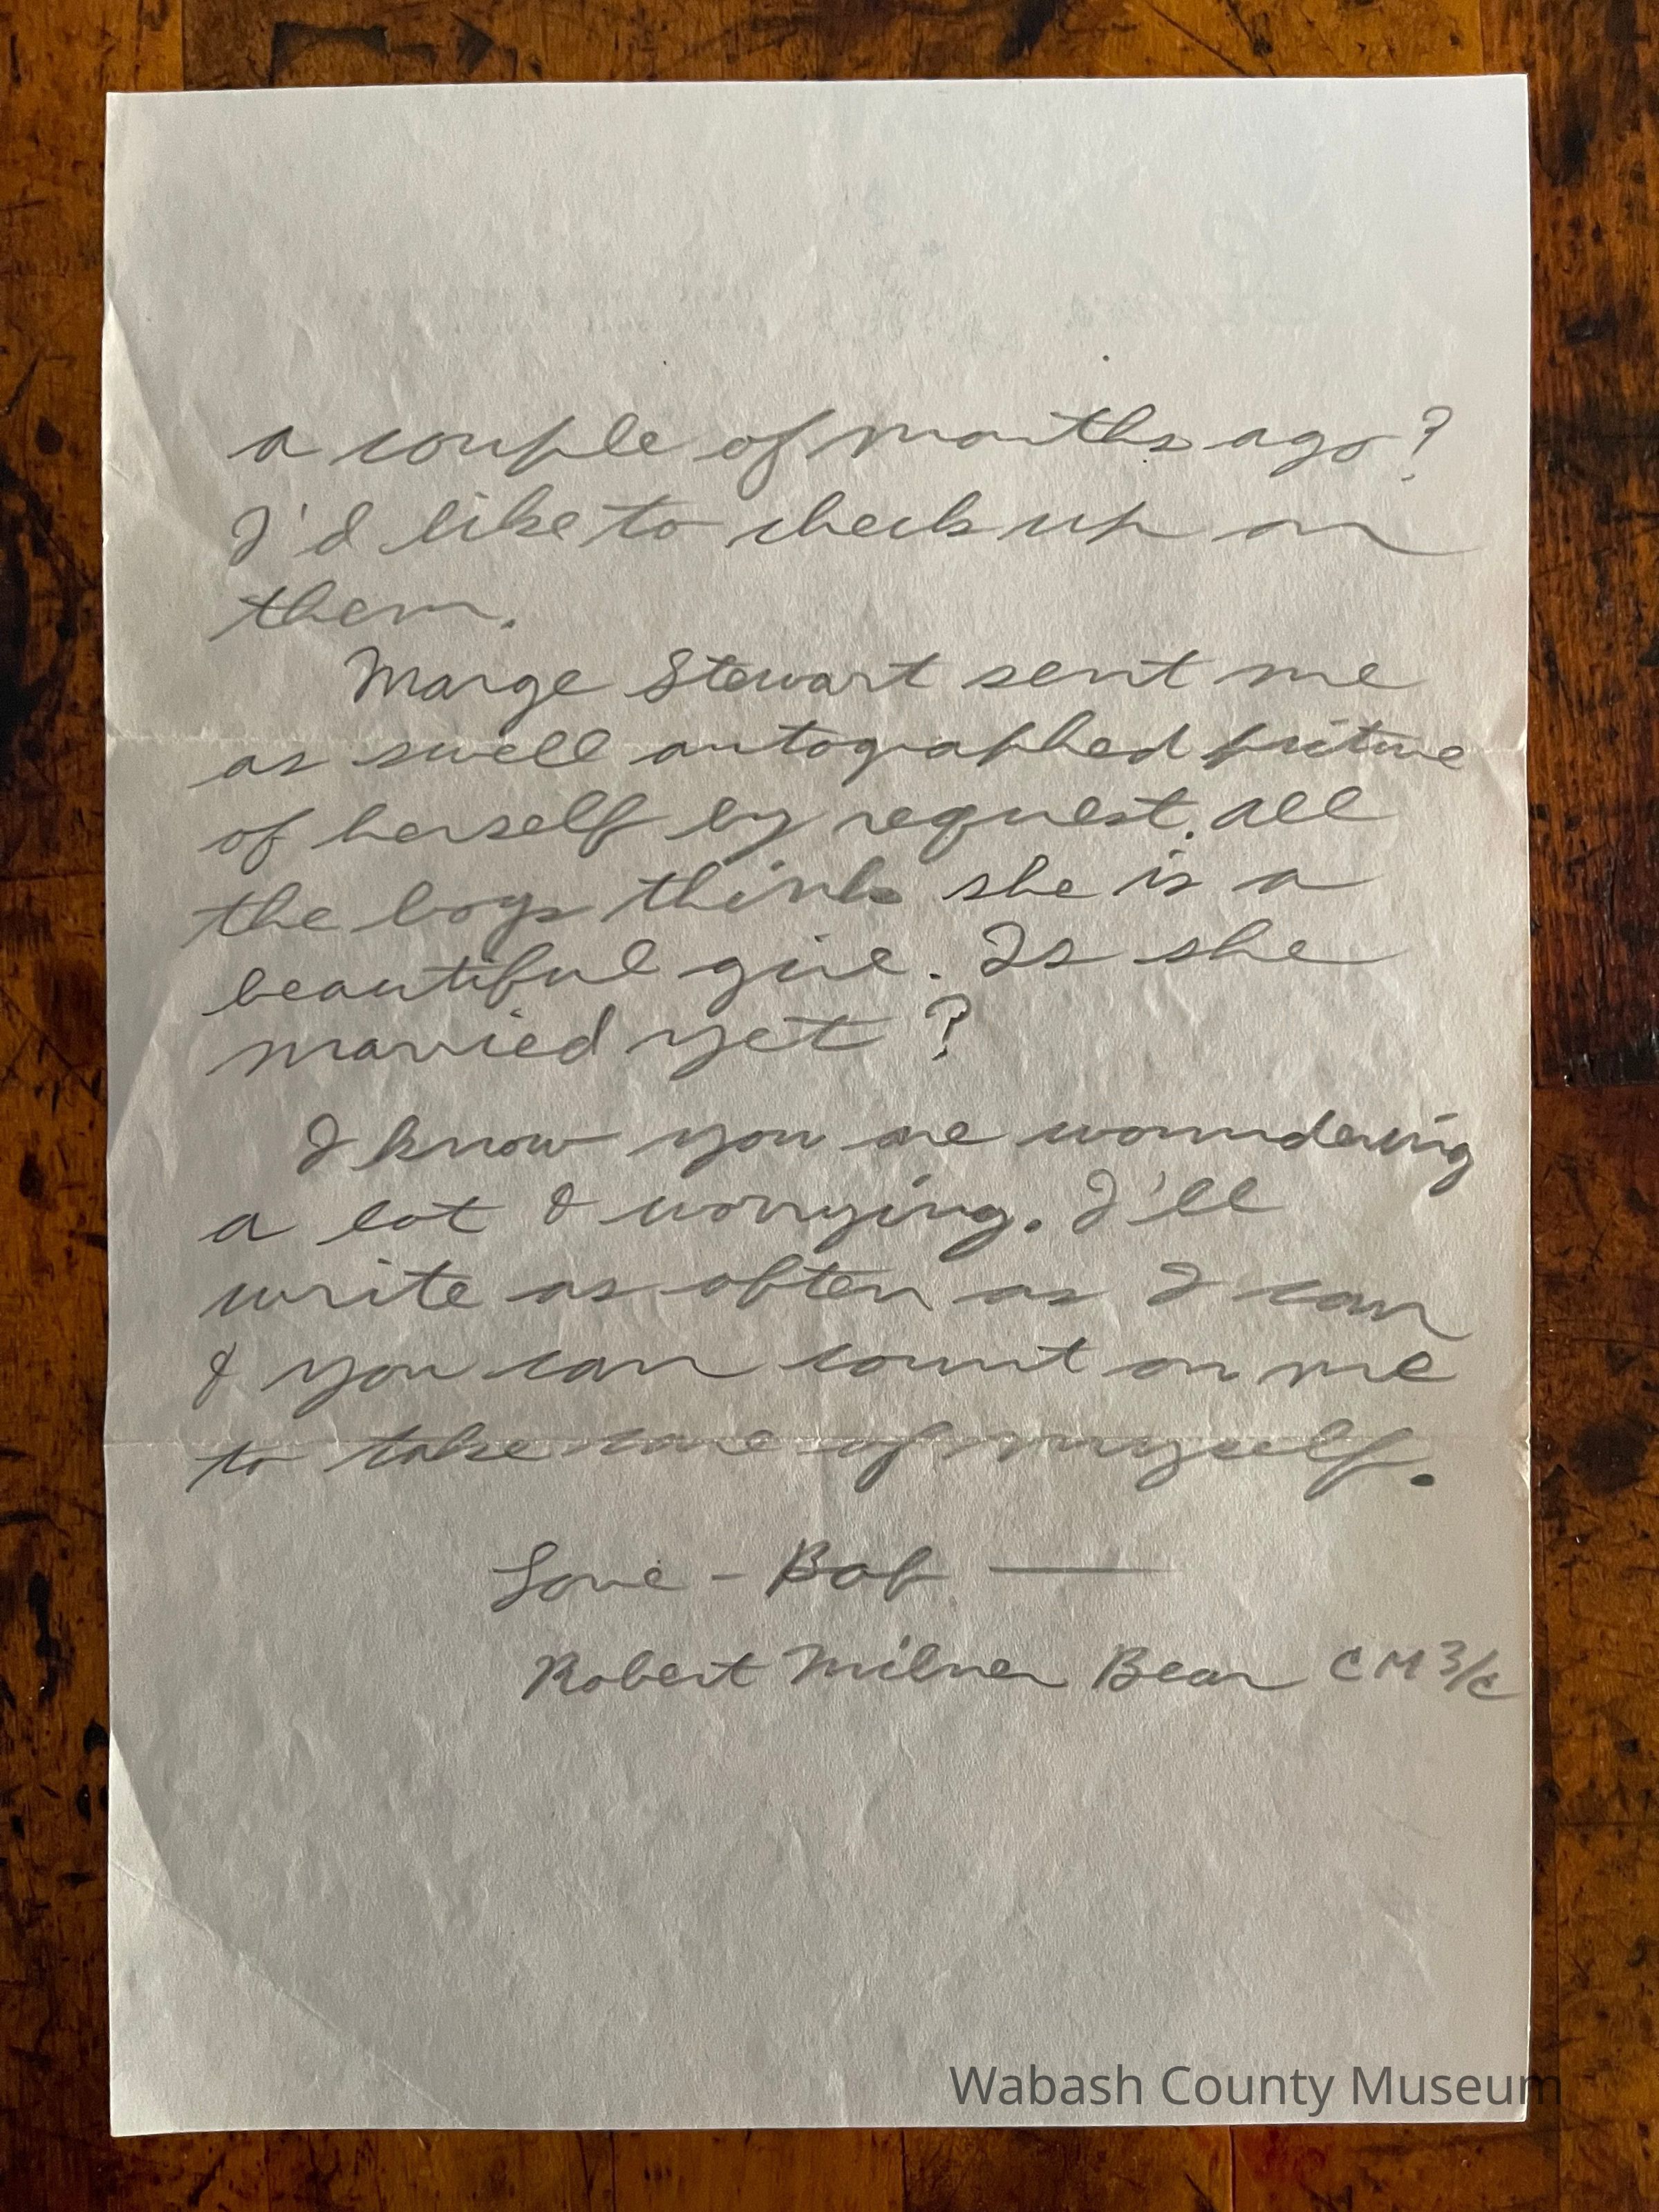 a couple of months ago?
I'd like to check up on
them.
Marge Stewart sent me
as swell autographed picture
of herself by request. All
the boys think she is a
beautiful girl. Is she
married yet?
I know you are woundering
a lot & worrying. I'll
write as often as I can
& you can count on me
to take care of myself.
Love - Bob —
Robert Milner Bear CM 3/c
Wabash County Museum